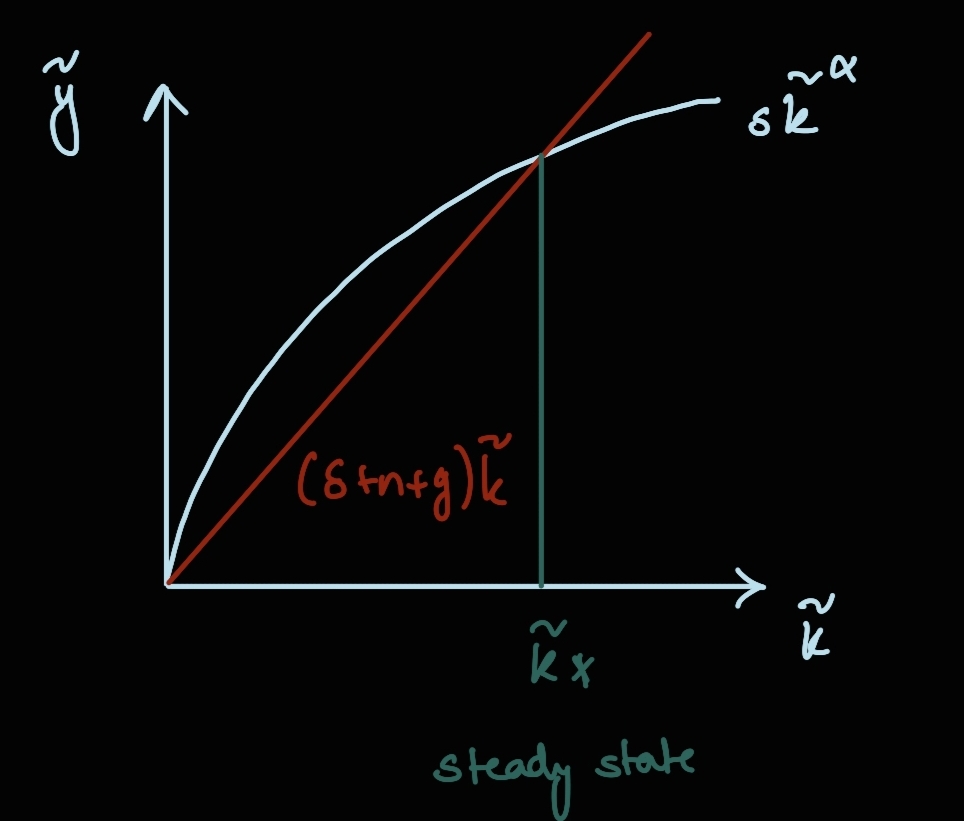 ỹ
s k̃^α
(δ+n+g) k̃
k̃
k̃ *
steady state